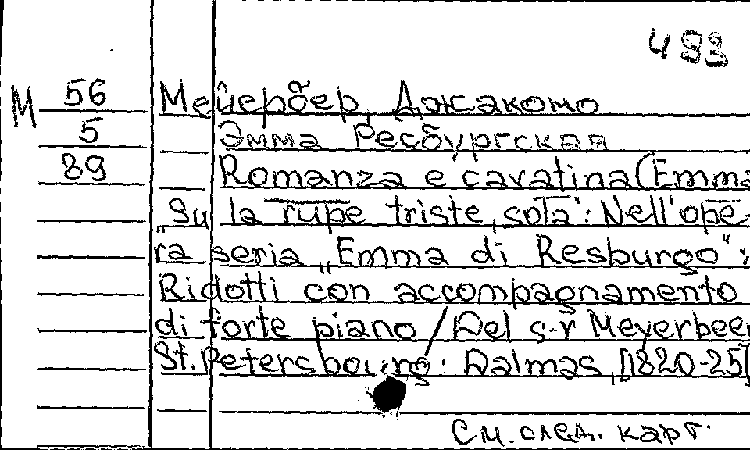 493
М 56 Мейербер, Джакомо
5 Эмма Ресбургская
89 Romanza e cavatina (Emma
"Su la rupe triste, sola": Nell'ope-
ra seria "Emma di Resburgo":
Ridotti con accompagnamento
di forte piano / Del s-r Meyerbeer
St. Petersbourg: Dalmas, [1820-25]
См. след. карт.